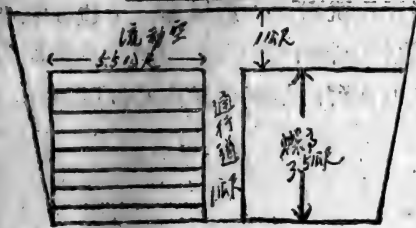 流动空
5.5公尺
1公尺
通行道
1公尺
高
3.5公尺